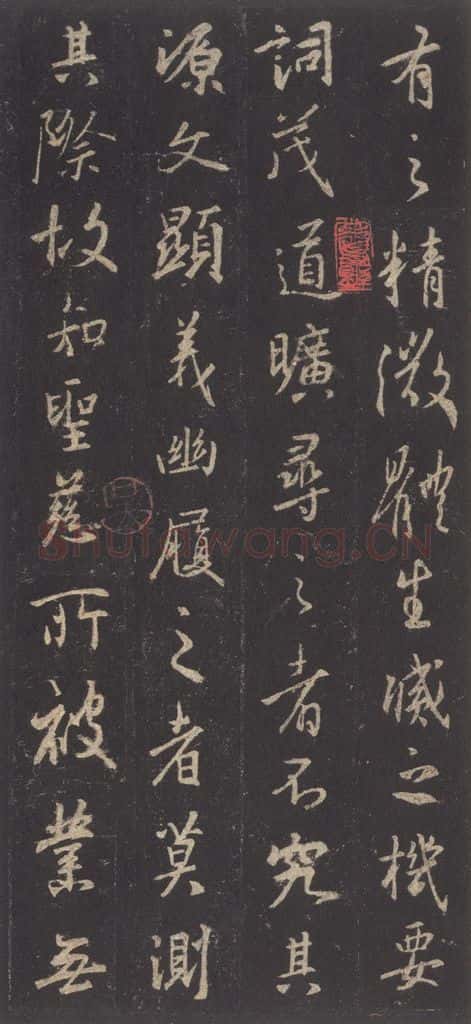 有之精微體生滅之機要
詞茂道曠尋之者不究其
源文顯義幽履之者莫測
其際故知聖慈所被業無
Shufawang.CN